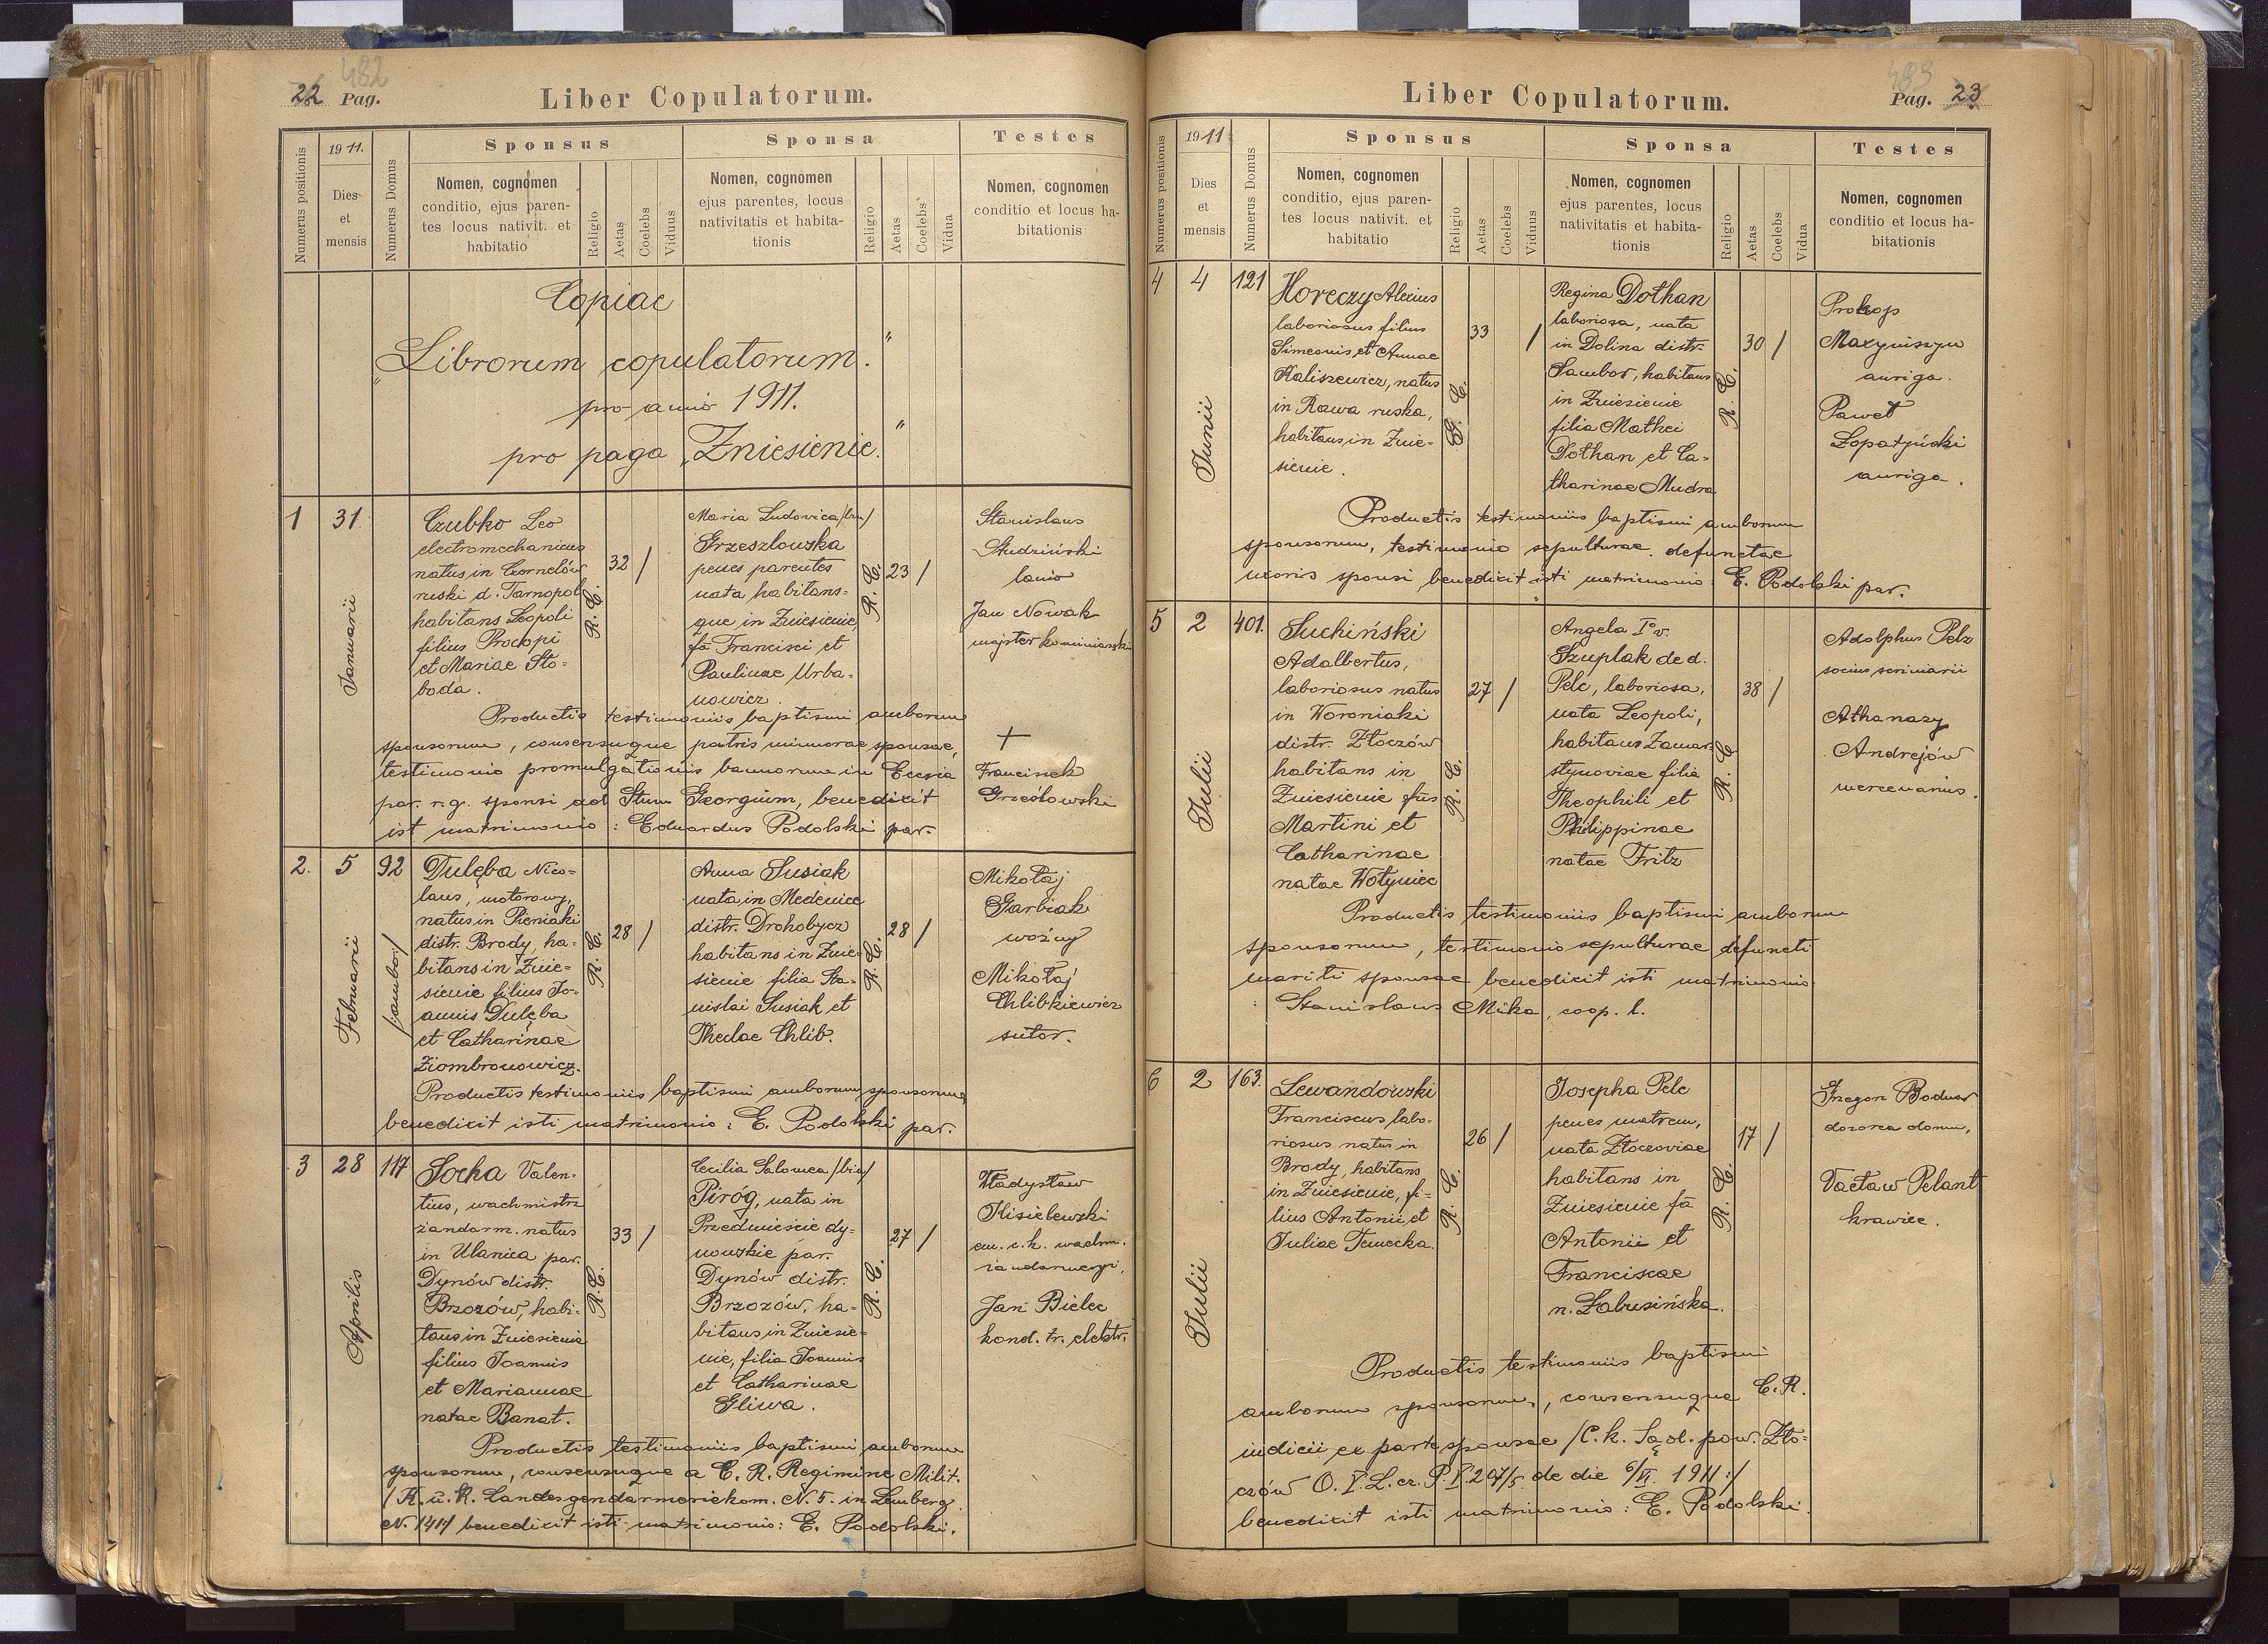 22 Pag.
482
Liber Copulatorum.
Numerus positionis
1911.
Dies
et
mensis
Numerus Domus
Sponsus
Nomen, cognomen
conditio, ejus paren-
tes locus nativit. et
habitatio
Religio
Aetas
Coelebs
Viduus
Sponsa
Nomen, cognomen
ejus parentes, locus
nativitatis et habita-
tionis
Religio
Aetas
Coelebs
Vidua
Testes
Nomen, cognomen
conditio et locus ha-
bitationis
Copiae
"Librorum copulatorum."
pro anno 1911.
pro paga "Zniesienie."
1
31
Januarii
Czubko Leo
electromechanicus
natus in Cornelów
ruski d. Tarnopol
habitans Leopoli
filius Procopi
et Mariae Sło-
boda.
R. C.
32 /
Maria Ludovica /bin/
Grzeszlowska
penes parentes
nata habitans-
que in Zniesienie,
fa Francisci et
Paulinae Urba-
nowicz.
R. C.
23 /
Stanislaus
Studziński
lanio
Jan Nowak
majster kominiarski
+
Franciszek
Grzesłowski
Productis testimoniis baptismi amborum
sponsorum, consensuque patris minorae sponsae,
testimonio promulgationis bannorum in Ecclesia
par. r. g. sponsi ad Stum Georgium, benedixit
ist matrimonio: Eduardus Podolski par.
2.
5
Februarii
92
/:ambo:/
Dulęba Nico-
laus, motorowy,
natus in Pieniaki
distr. Brody, ha-
bitans in Znie-
sienie filius Jo-
annis Dulęba
et Catharinae
Ziombronowicz.
R. C.
28 /
Anna Susiak
nata in Medenice
distr. Drohobycz
habitans in Znie-
sienie filia Sta-
nislai Susiak et
Theclae Chlib.
R. C.
28 /
Mikołaj
Garbiak
woźny
Mikołaj
Chlibkiewicz
sutor.
Productis testimoniis baptismi amborum sponsorum,
benedixit isti matrimonio: E. Podolski par.
3
28
Aprilis
117
Socha Valen-
tius, wachmistrz
żandarm. natus
in Ulanica par.
Dynów distr.
Brzozów, habi-
tans in Zniesienie
filius Joannis
et Mariannae
natae Banat.
R. C.
33 /
Cecilia Salomea /bin/
Piróg, nata in
Przedmieście dy-
nowskie par.
Dynów distr.
Brzozów, ha-
bitans in Zniesie-
nie, filia Joannis
et Catharinae
Gliwa.
R. C.
27 /
Władysław
Kisielewski
em. c. k. wachm.
żandarmeryi,
Jan Bielec
kond. tr. elektr.
Productis testimoniis baptismi amborum
sponsorum, consensuque a C. R. Regimine Milit.
/K. u. K. Landesgendarmeriekom. N. 5. in Lemberg
N. 1414/ benedixit isti matrimonio: E. Podolski.
483
Liber Copulatorum.
Pag. 23
Numerus positionis
1911
Dies
et
mensis
Numerus Domus
Sponsus
Nomen, cognomen
conditio, ejus paren-
tes locus nativit. et
habitatio
Religio
Aetas
Coelebs
Viduus
Sponsa
Nomen, cognomen
ejus parentes, locus
nativitatis et habita-
tionis
Religio
Aetas
Coelebs
Vidua
Testes
Nomen, cognomen
conditio et locus ha-
bitationis
4
4
Junii
121
Horeczy Alexius
laboriosus filius
Simeonis et Annae
Kaliszewicz, natus
in Rawa ruska,
habitans in Znie-
sienie.
G. C.
33 /
Regina Dothan
laboriosa, nata
in Dolina distr.
Sambor, habitans
in Zniesienie
filia Mathei
Dothan et Ca-
tharinae Mudra
R. C.
30 /
Prokop
Maxymiszyn
auriga.
Paweł
Łopatyński
auriga.
Productis testimoniis baptismi amborum
sponsorum, testimonio sepulturae defunctae
uxoris sponsi benedixit isti matrimonio: E. Podolski par.
5
2
Julii
401.
Suchiński
Adalbertus,
laboriosus natus
in Woroniaki
distr. Złoczów
habitans in
Zniesienie fius
Martini et
Catharinae
natae Wołyniec
R. C.
27 /
Angela Io v.
Szuplak de d.
Pelc, laboriosa,
nata Leopoli,
habitans Zamar-
stynoviae filia
Theophili et
Philippinae
natae Fritz
R. C.
38 /
Adolphus Pelz
socius scriniarii
Athanazy
Andrejów
mercenarius.
Productis testimoniis baptismi amborum
sponsorum, testimonio sepulturae defuncti
mariti sponsae benedixit isti matrimonio:
Stanislaus Mika, coop. l.
6
2
Julii
163.
Lewandowski
Franciscus labo-
riosus natus in
Brody, habitans
in Zniesienie, fi-
lius Antonii et
Juliae Temecka.
R. C.
26 /
Josepha Pelc
penes matrem,
nata Złoczoviae
habitans in
Zniesienie fa
Antonii et
Franciscae
n. Łabusińska.
R. C.
17 /
Grzegorz Bodnar
dozorca domu,
Vacław Pelant
krawiec.
Productis testimoniis baptismi
amborum sponsorum, consensuque C. R.
iudicii ex parte sponsae /C. k. Sąd. pow. Zło-
czów O. V. L. cz. P. V. 207/5. de die 6/VI. 1911:/
benedixit isti matrimonio: E. Podolski.